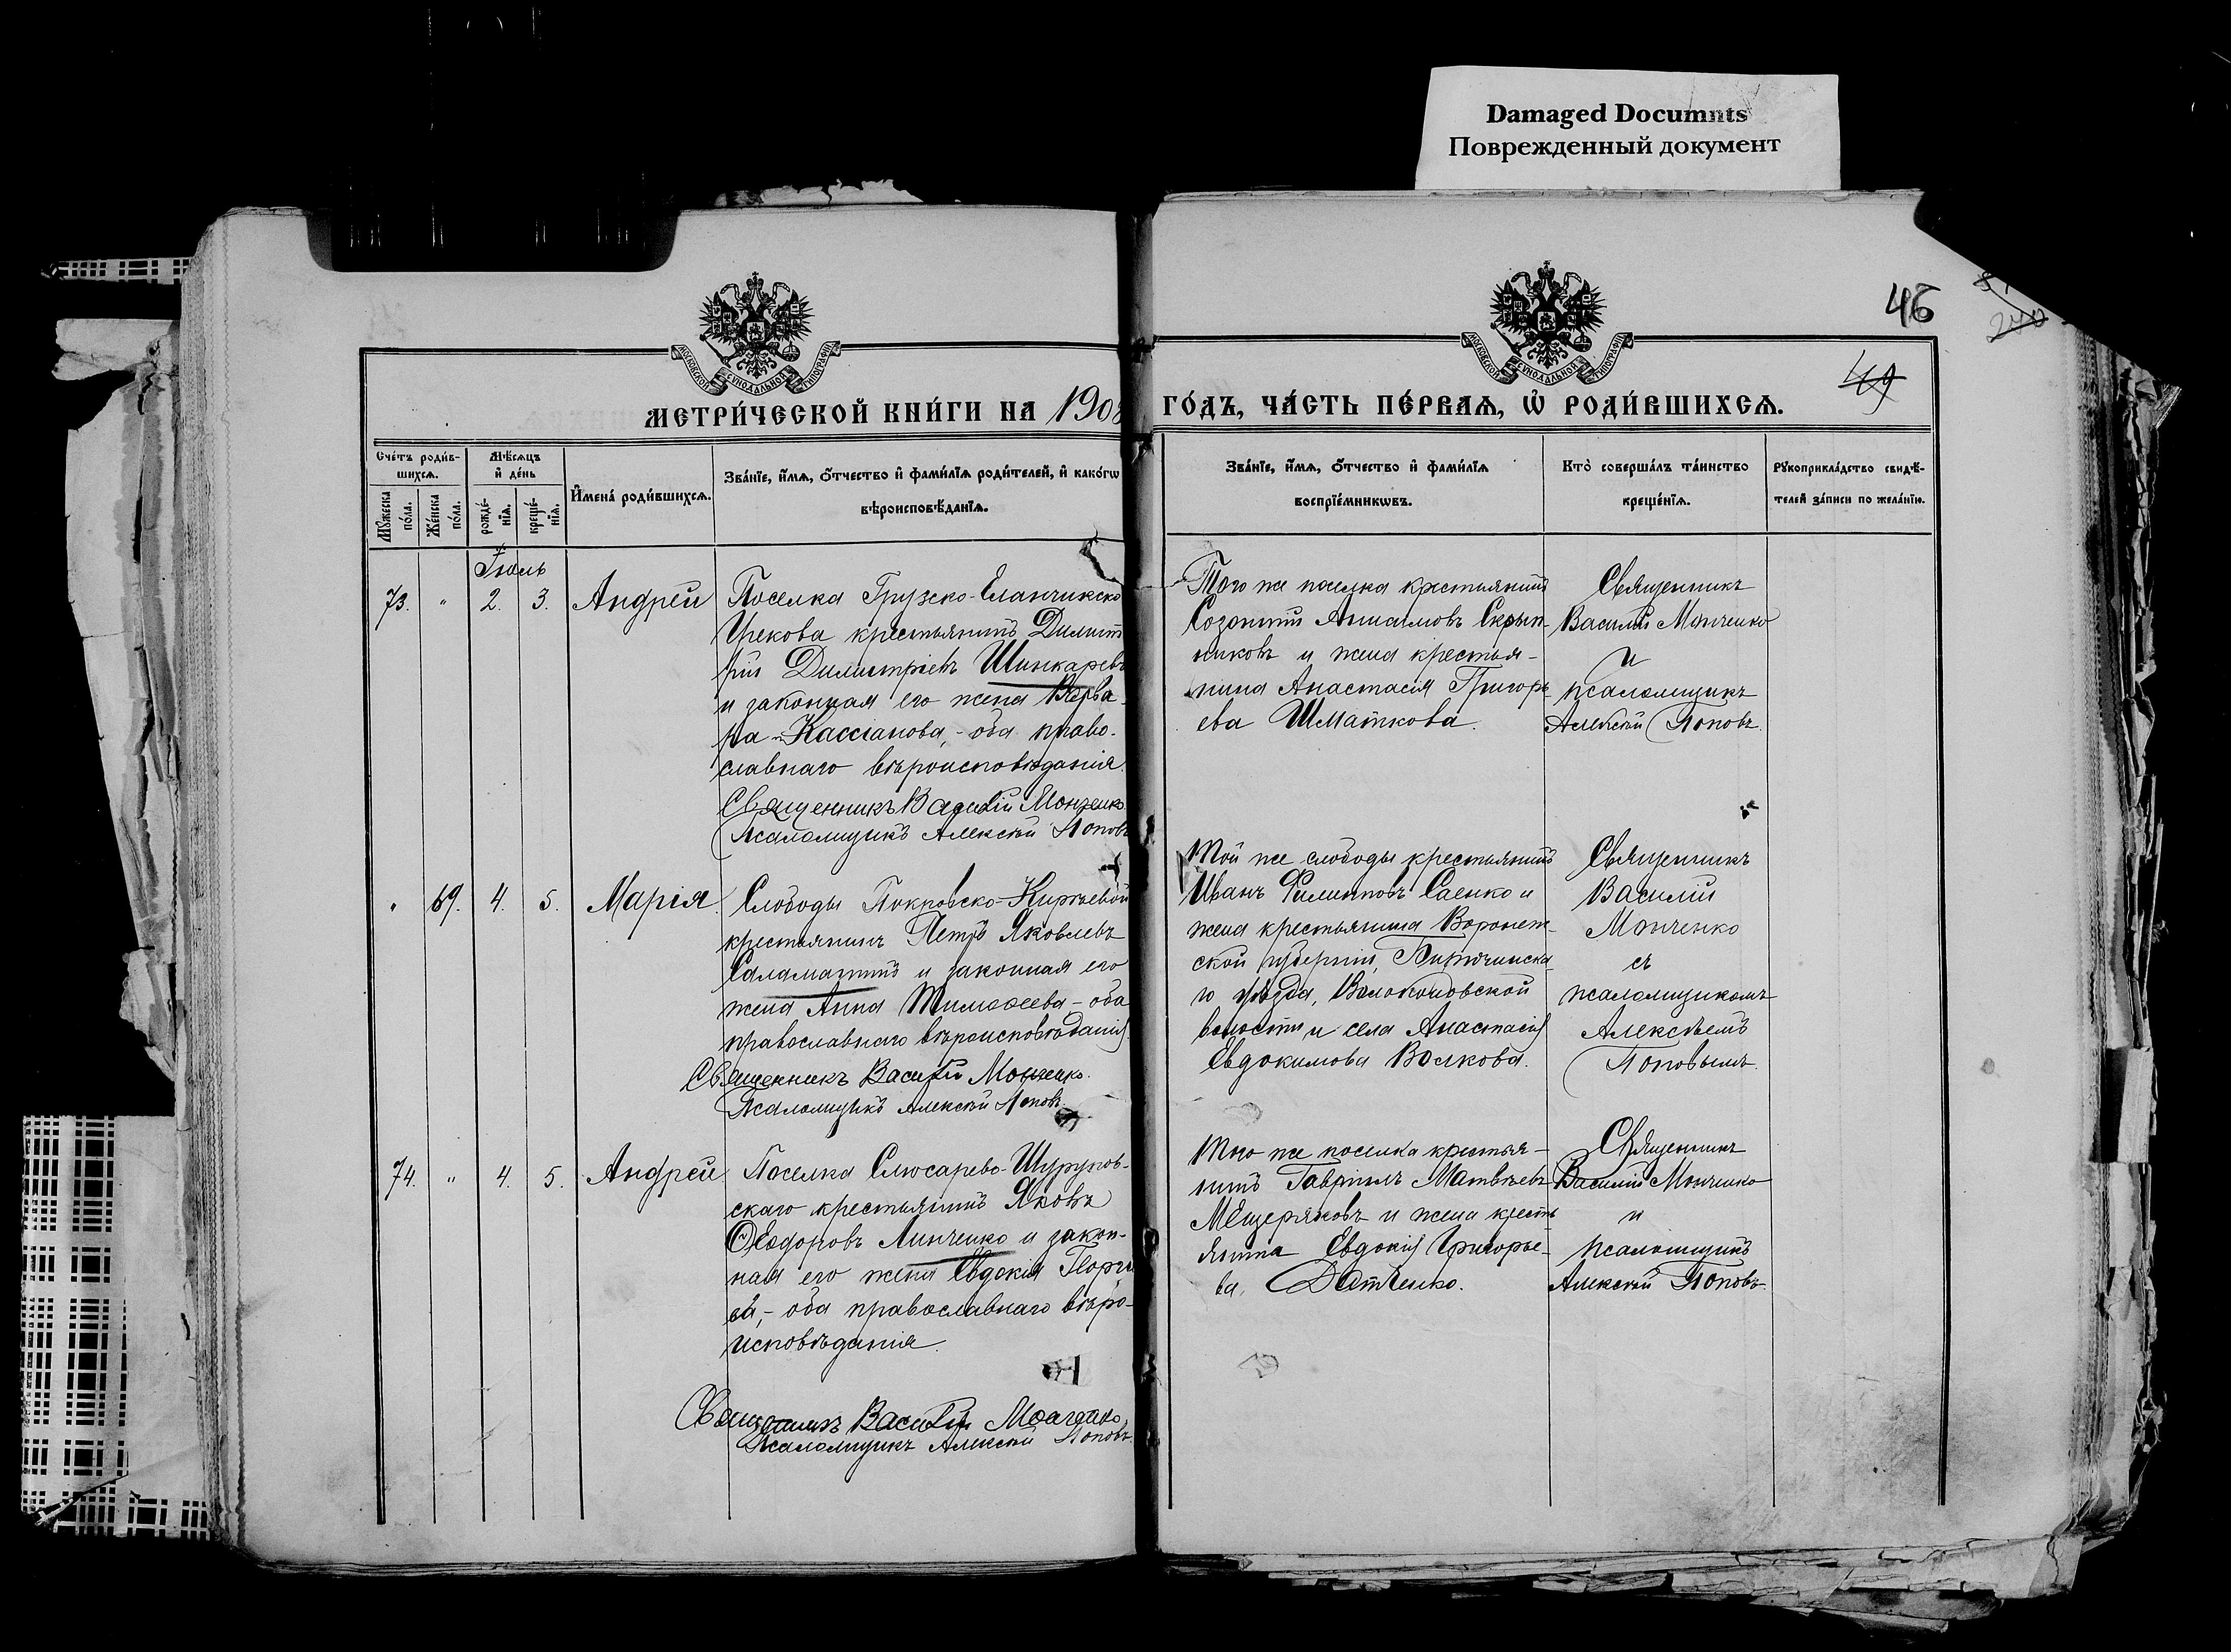 Damaged Documnts
Поврежденный документ
46
240
49
МОСКОВСКОЙ СѴНОДАЛЬНОЙ ТИПОГРАФІИ
МОСКОВСКОЙ СѴНОДАЛЬНОЙ ТИПОГРАФІИ
МЕТРИ́ЧЕСКОЙ КНИ́ГИ НА 1908
ГО́ДЪ, ЧА́СТЬ ПЕ́РВАѦ, Ѡ҆ РОДИ́ВШИХСѦ.
Сче́тъ роди́в-
шихсѧ.
Мꙋ́жеска по́ла.
Же́нска по́ла.
Мѣ́сѧцъ
и҆ де́нь
рожде́-
нїѧ.
креще́-
нїѧ.
И҆мена̀ роди́вшихсѧ.
Зва́нїе, и҆́мѧ, ѻ҆́тчество и҆ фами́лїѧ роди́телей, и҆ како́гѡ
вѣроисповѣ́данїѧ.
Зва́нїе, и҆́мѧ, ѻ҆́тчество и҆ фами́лїѧ
воспрїе́мникѡвъ.
Кто̀ соверша́лъ та́инство
креще́нїѧ.
Рꙋкоприкла́дство свидѣ́-
телей за́писи по жела́нїю.
Іюль
73. " 2. 3. Андрей
Поселка Грузско-Еланчикско
Грекова крестьянинъ Димит
рій Димитріевъ Шинкаревъ
и законная его жена Варва-
ра Кассіанова, - оба право-
славнаго вѣроисповѣданія.
Священникъ Василій Монченко
Псаломщикъ Алексѣй Поповъ
Того же поселка крестьянинъ
Созонтій Анисимовъ Скрып-
никовъ и жена крестья-
нина Анастасія Григорь-
ева Шматкова.
Священникъ
Василій Монченко
и
псаломщикъ
Алексѣй Поповъ.
" 69. 4. 5. Марія.
Слободы Покровско-Кирѣевой
крестьянинъ Петръ Яковлевъ
Саламатинъ и законная его
жена Анна Тимоѳеева - оба
православнаго вѣроисповѣданія.
Священникъ Василій Монченко.
Псаломщикъ Алексѣй Поповъ.
Той же слободы крестьянинъ
Иванъ Филипповъ Саенко и
жена крестьянина Воронеж-
ской губерніи, Бирючинска-
го уѣзда,
волости и села Анастасія
Евдокимова Волкова.
Священникъ
Василій
Монченко
съ
псаломщикомъ
Алексѣемъ
Поповымъ.
74. " 4. 5. Андрей
Поселка Слюсарево-Шурупов-
скаго крестьянинъ Яковъ
Ѳеодоровъ Линченко и закон-
ная его жена Евдокія
- оба православнаго вѣро-
исповѣданія.
Священникъ Василій Монченко
Псаломщикъ Алексѣй Поповъ.
Того же поселка крестья-
нинъ Гавріилъ Матвѣевъ
Мещеряковъ и жена кресть
янина Евдокія Григорье-
ва Даценко.
Священникъ
Василій Монченко
и
псаломщикъ
Алексѣй Поповъ.